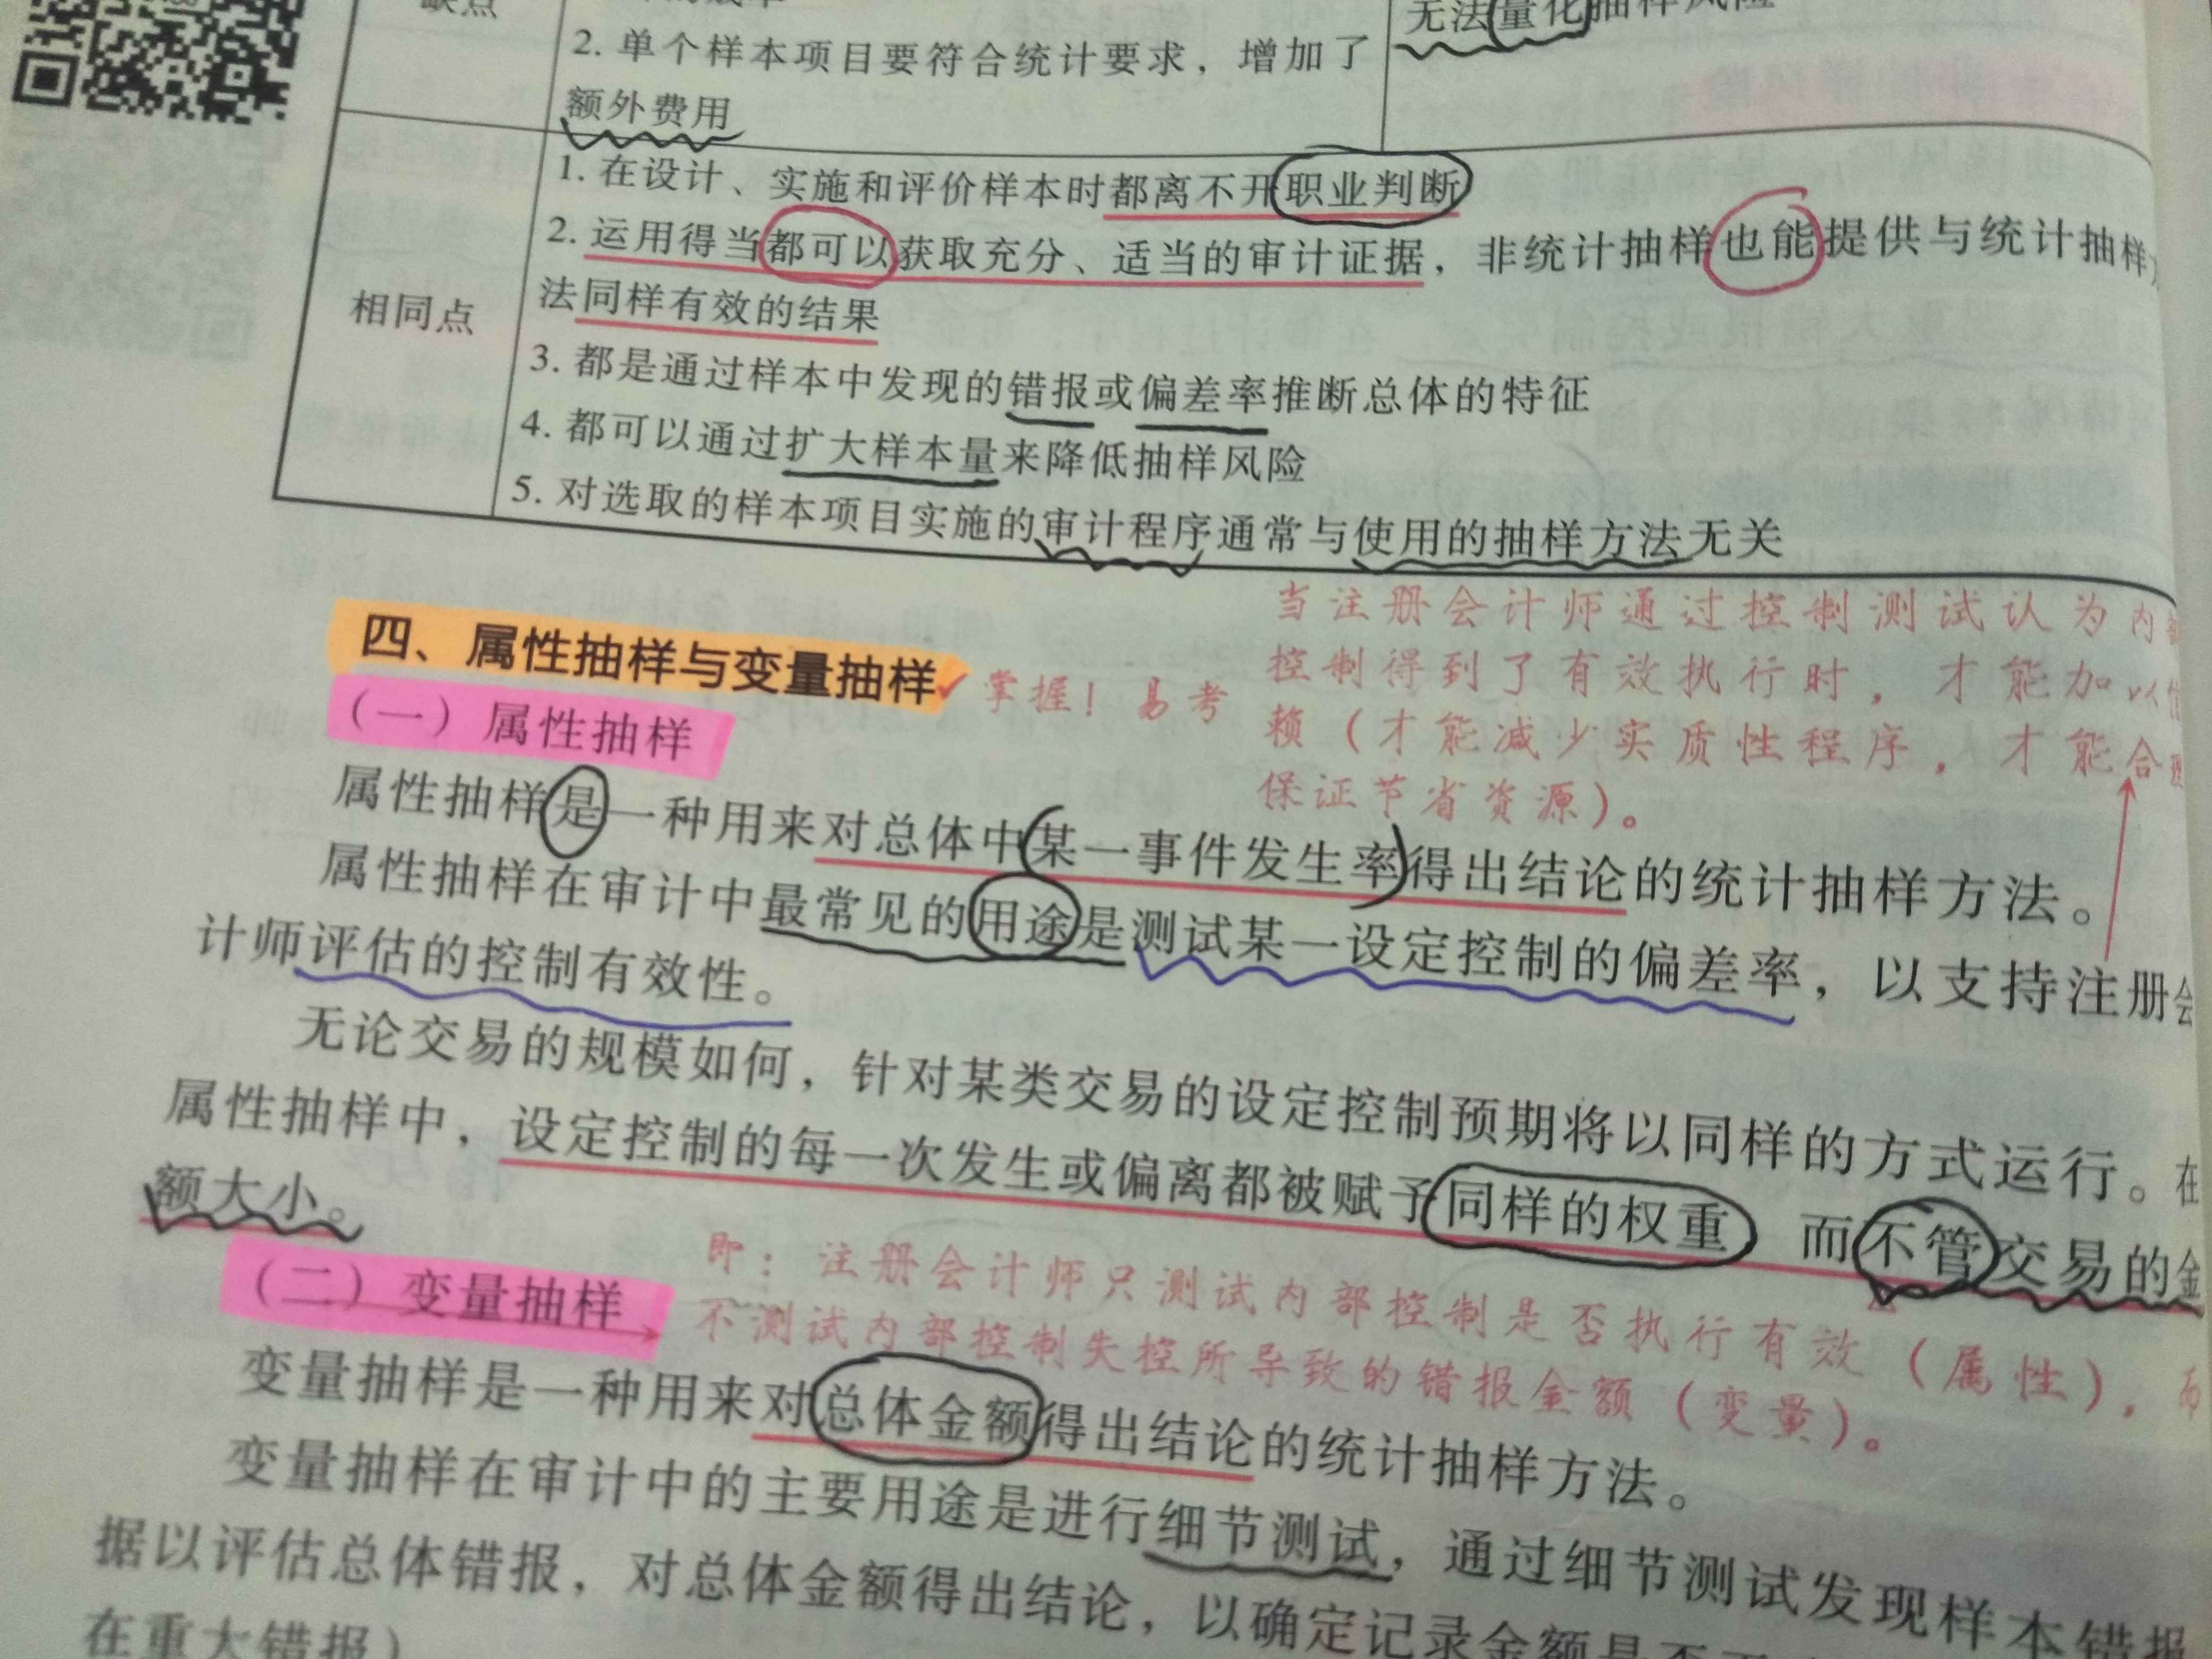 缺点
2. 单个样本项目要符合统计要求，增加了
额外费用
无法量化抽样风险
相同点
1. 在设计、实施和评价样本时都离不开职业判断
2. 运用得当都可以获取充分、适当的审计证据，非统计抽样也能提供与统计抽样
法同样有效的结果
3. 都是通过样本中发现的错报或偏差率推断总体的特征
4. 都可以通过扩大样本量来降低抽样风险
5. 对选取的样本项目实施的审计程序通常与使用的抽样方法无关
四、属性抽样与变量抽样 ✓掌握！易考
当注册会计师通过控制测试认为内
控制得到了有效执行时，才能加以
赖（才能减少实质性程序，才能合
保证节省资源）。
（一）属性抽样
属性抽样是一种用来对总体中某一事件发生率得出结论的统计抽样方法。
属性抽样在审计中最常见的用途是测试某一设定控制的偏差率，以支持注册会
计师评估的控制有效性。
无论交易的规模如何，针对某类交易的设定控制预期将以同样的方式运行。在
属性抽样中，设定控制的每一次发生或偏离都被赋予同样的权重 而不管交易的金
额大小。
（二）变量抽样
即：注册会计师只测试内部控制是否执行有效（属性），而
不测试内部控制失控所导致的错报金额（变量）。
变量抽样是一种用来对总体金额得出结论的统计抽样方法。
变量抽样在审计中的主要用途是进行细节测试，通过细节测试发现样本错报
据以评估总体错报，对总体金额得出结论，以确定记录金额是否
在重大错报）